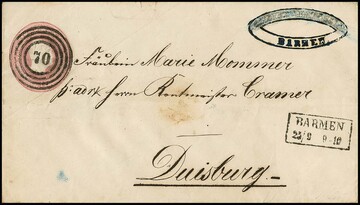 70
BARMEN
Fräulein Marie Mommer
p: adr: Herrn Rentmeister Cramer
BARMEN
23/8 9-10
Duisburg.